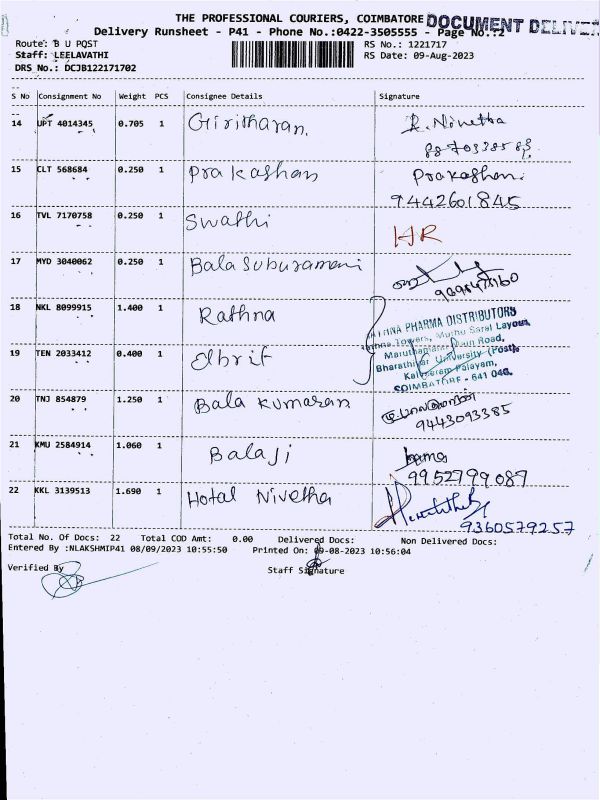 THE PROFESSIONAL COURIERS, COIMBATORE
DOCUMENT DELIVE
Delivery Runsheet - P41 - Phone No.:0422-3505555 - Page No.:2
Route: B U POST
RS No.: 1221717
Staff: LEELAVATHI
RS Date: 09-Aug-2023
DRS No.: DCJB122171702
S No Consignment No Weight PCS Consignee Details Signature
14 UPT 4014345 0.705 1 Giritharan. R. Nivetha
15 CLT 568684 0.250 1 Prakashan Prakashan.
9442601845
16 TVL 7170758 0.250 1 Swathi HR
17 MYD 3040062 0.250 1 Balasuburamani
18 NKL 8099915 1.400 1 Rathna
RATHNA PHARMA DISTRIBUTORS
Rathna Towers, Muthu Saral Layout,
Maruthamalai Main Road,
19 TEN 2033412 0.400 1 Elbrit
Bharathiar University (Post),
Kalveeram Palayam,
COIMBATORE - 641 046.
20 TNJ 854879 1.250 1 Bala Kumaran
9443093385
21 KMU 2584914 1.060 1 Balaji
9952799087
22 KKL 3139513 1.690 1 Hotal Nivetha
9360579257
Total No. Of Docs: 22 Total COD Amt: 0.00 Delivered Docs: Non Delivered Docs:
Entered By :NLAKSHMIP41 08/09/2023 10:55:50 Printed On: 09-08-2023 10:56:04
Verified By
Staff Signature